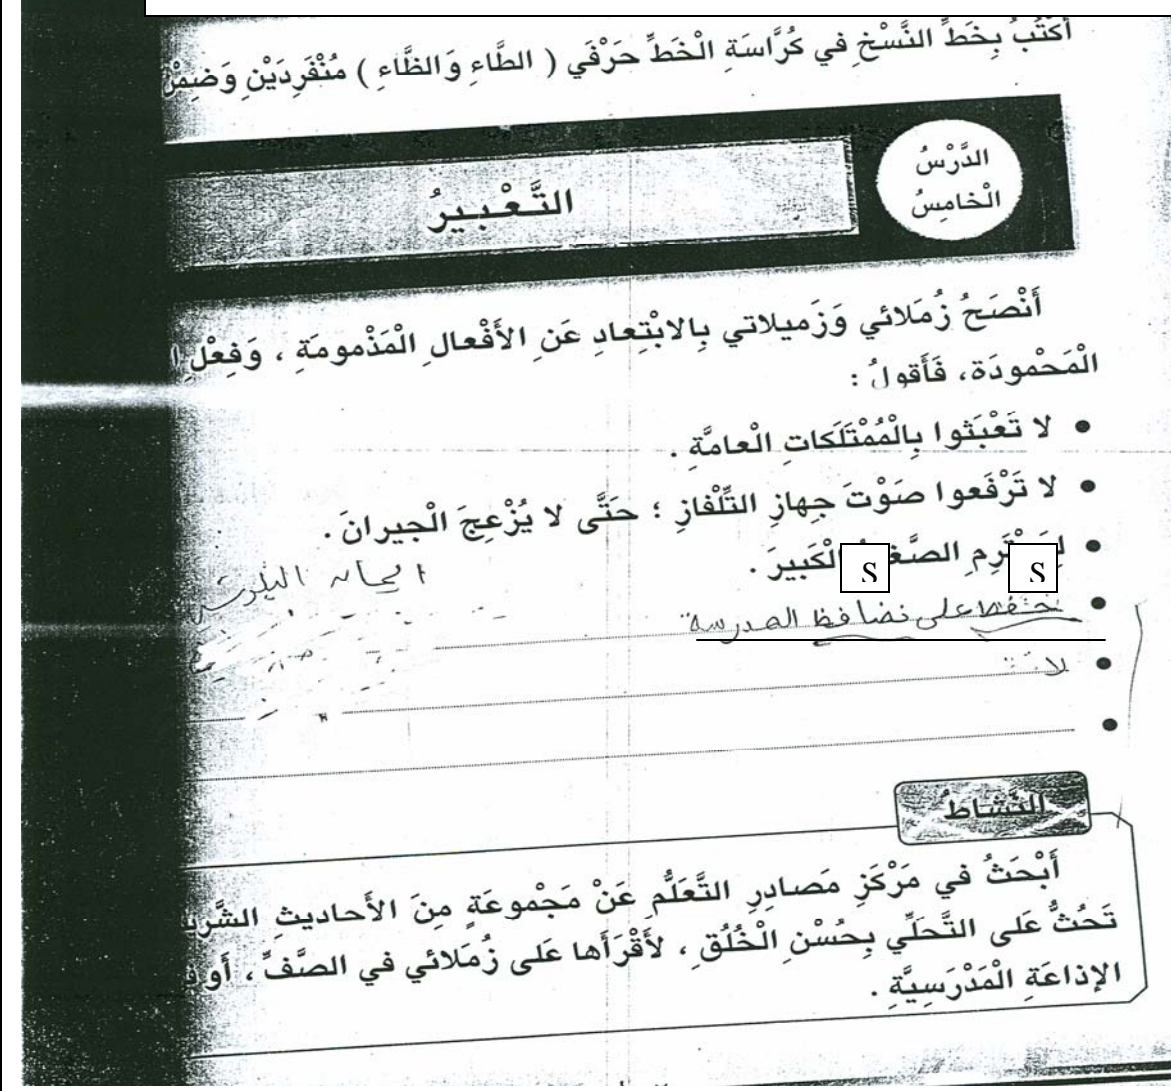 أَكْتُبُ بِخَطِّ النَّسْخِ في كُرَّاسَةِ الْخَطِّ حَرْفَي ( الطَّاءِ وَالظَّاءِ ) مُنْفَرِدَيْنِ وَضِمْنَ
الدَّرْسُ
الْخامِسُ
التَّعْبيرُ
أَنْصَحُ زُمَلائي وَزَميلاتي بِالابْتِعادِ عَنِ الأَفْعالِ الْمَذْمومَةِ ، وَفِعْلِ
الْمَحْمودَة، فَأَقولُ :
• لا تَعْبَثوا بِالْمُمْتَلَكاتِ الْعامَّةِ .
• لا تَرْفَعوا صَوْتَ جِهازِ التِّلْفازِ ؛ حَتَّى لا يُزْعِجَ الْجيرانَ .
• S S الْكَبيرَ .
• على نضافظ المدرسة
•
•
النَّشاطُ
أَبْحَثُ في مَرْكَزِ مَصادِرِ التَّعَلُّمِ عَنْ مَجْموعَةٍ مِنَ الأَحاديثِ
تَحُثُّ عَلى التَّحَلِّي بِحُسْنِ الْخُلُقِ ، لأَقْرَأَها عَلى زُمَلائي في الصَّفِّ ، أَو
الإذاعَةِ الْمَدْرَسِيَّةِ .